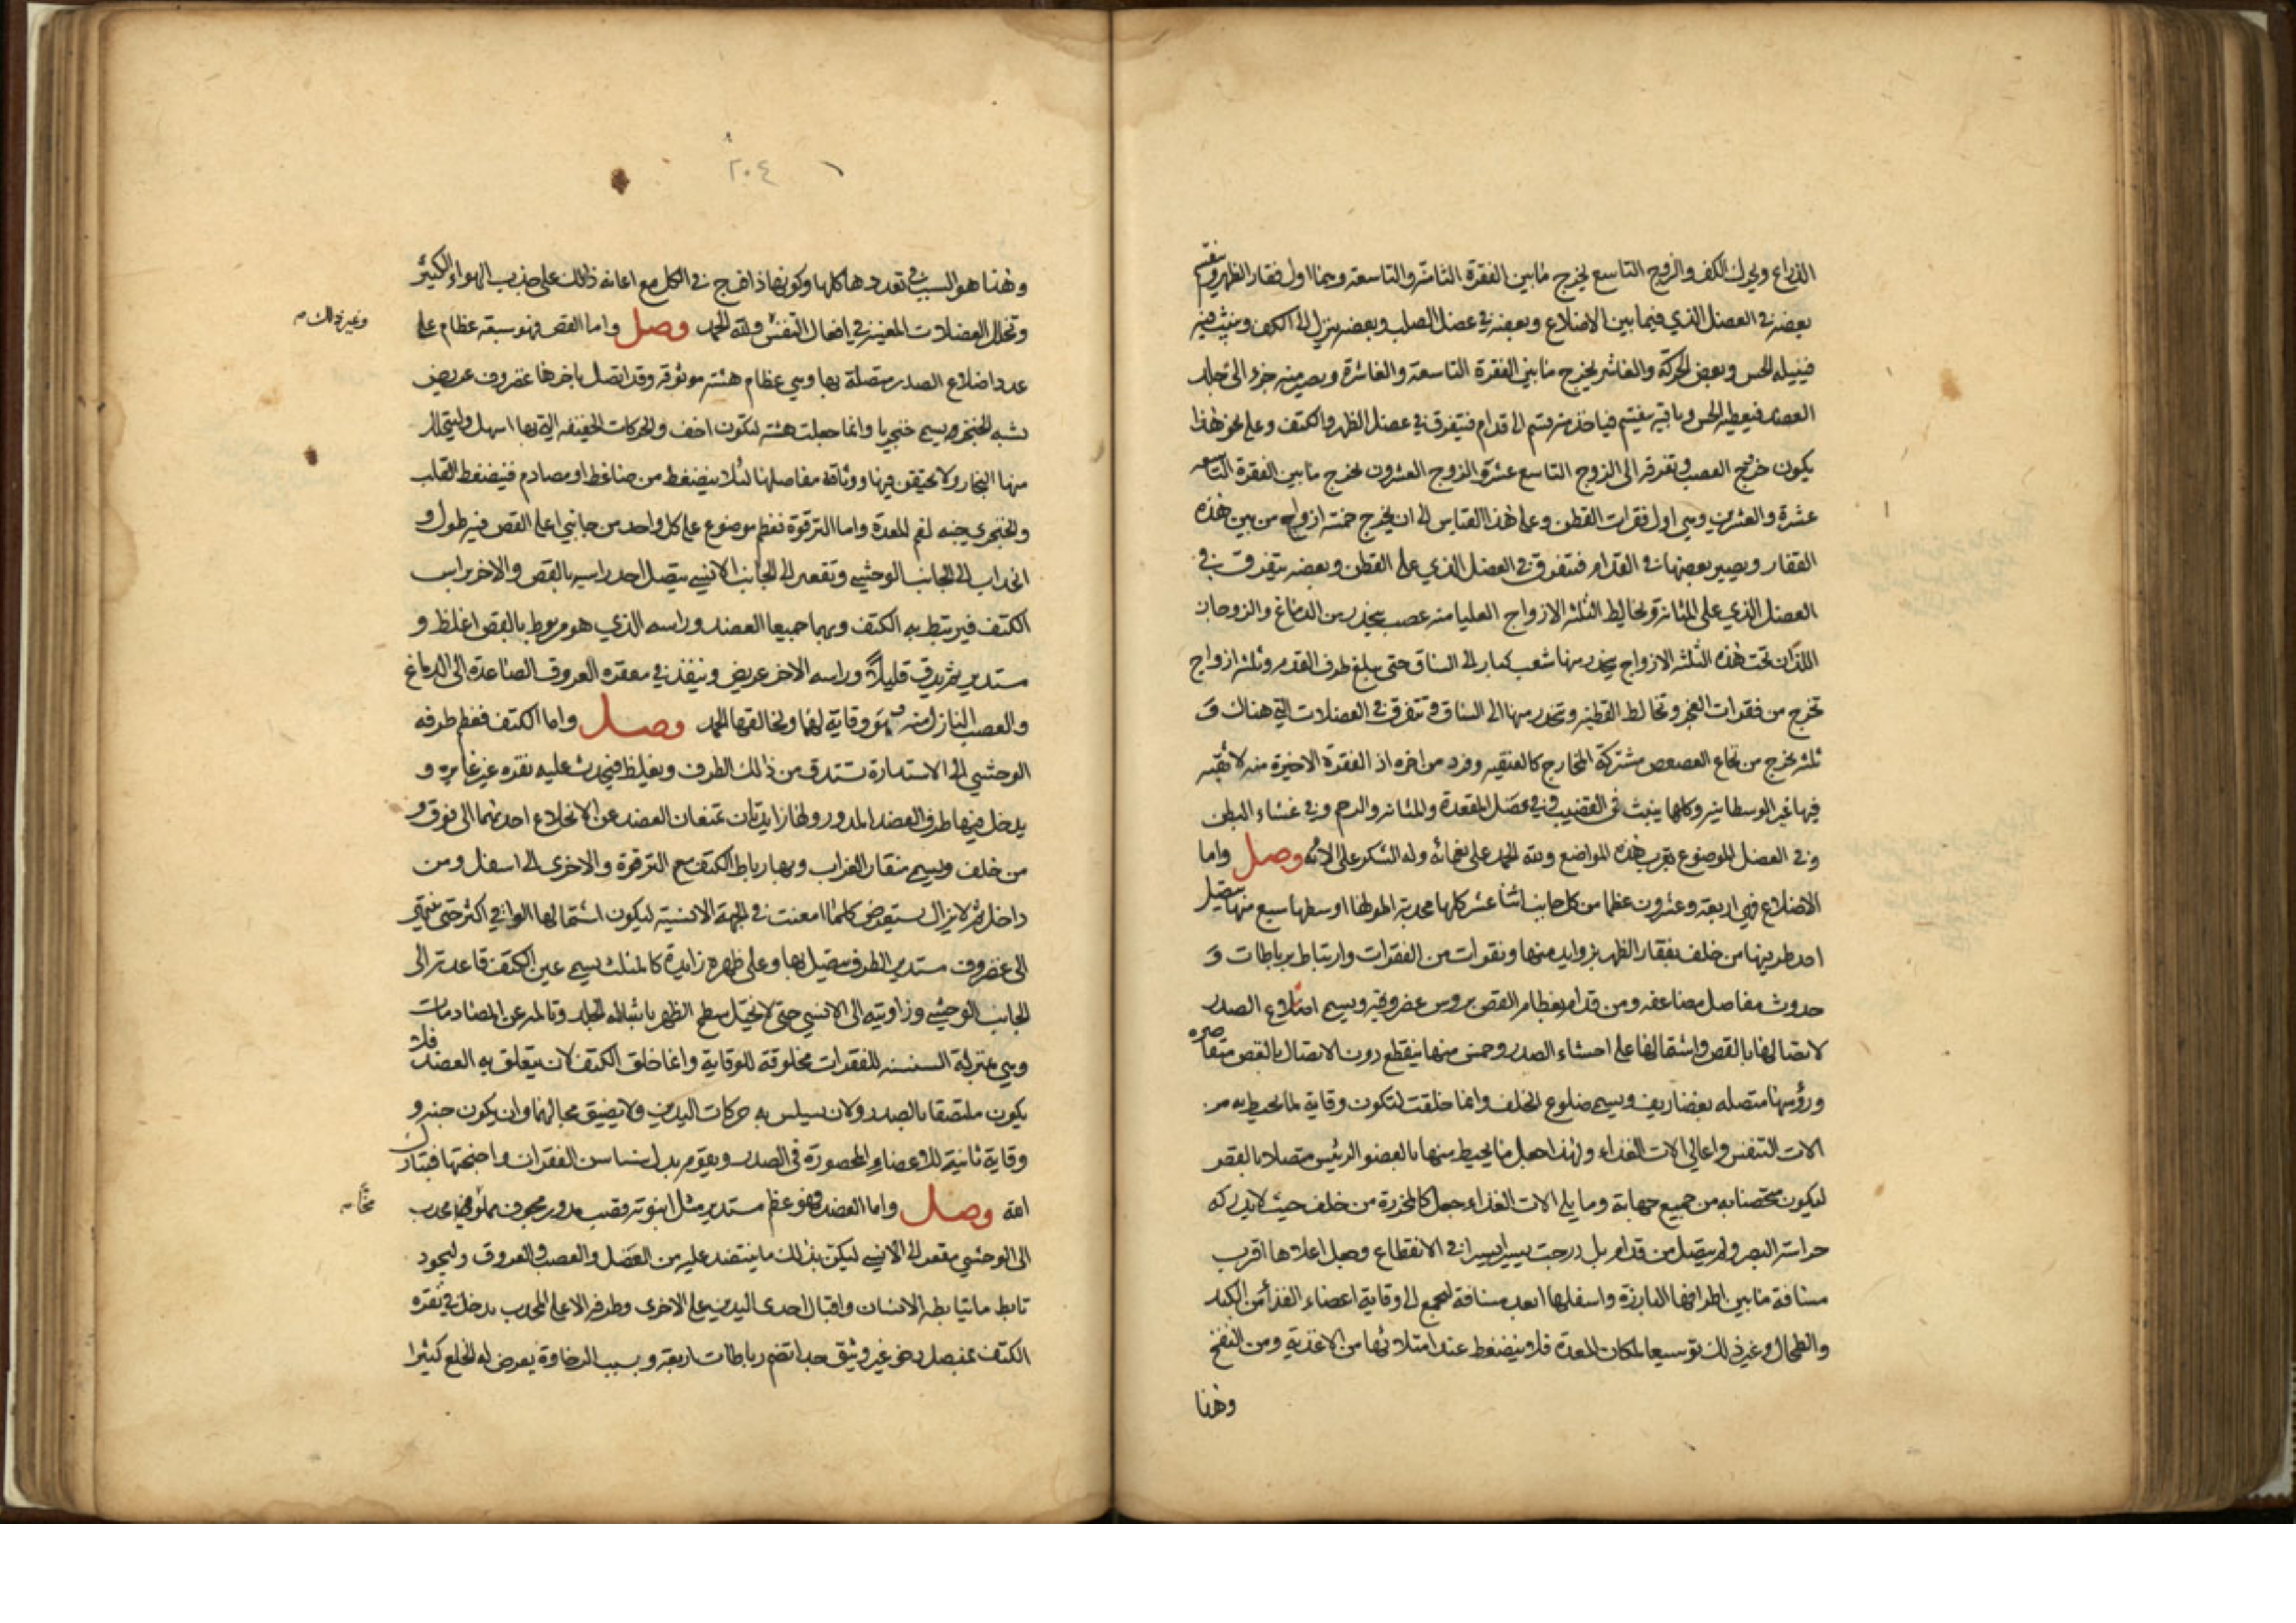 الذراع ويحرك الكف والزوج التاسع يخرج مما بين الفقرة الثامنة والتاسعة وهما اول فقار الظهر ويقسم
بعضه في العضل الذي فيما بين الاضلاع وبعضه في عضل الصلب وبعضه ينزل الى الكف وينبث فيه
فينيله الحس وبعض الحركة والعاشر يخرج ما بين الفقرة التاسعة والعاشرة ويصير منه جزء الى جلد
العضد فيعطيه الحس وباقيه ينقسم فياخذ منه قسم الى قدام فيتفرق في عضل الظهر والكتف وعلى نحو هذا
يكون خروج العصب وتفرقه الى الزوج التاسع عشر والزوج العشرون يخرج ما بين الفقرة التاسعة
عشرة والعشرين وهي اول فقرات القطن وعلى هذا القياس الى ان يخرج خمسة ازواج من بين هذه
الفقار ويصير بعضها في القدام فتفرق في العضل الذي على القطن وبعضه يتفرق في
العضل الذي على المثانة ويخالط الثلثة الازواج العليا منه عصب ينحدر من الدماغ والزوجان
اللذان تحت هذه الثلثة الازواج ينحدر منها شعب كبار الى الساق حتى يبلغ طرف القدم وثلثة ازواج
تخرج من فقرات العجز وتخالط القطنية وتنحدر منها الى الساق وتتفرق في العضلات التي هناك و
ثلثة تخرج من نخاع العصعص مشتركة المخارج كالعنقية وفرد من اخره اذ الفقرة الاخيرة منه لا ثقبه
فيها غير الوسطانية وكلها ينبث في القضيب وفي عضل المقعدة والمثانة والرحم وفي غشاء البطن
وفي العضل الموضوع بقرب هذه المواضع ولله الحمد على نعمائه وله الشكر على الائه وصل واما
الاضلاع فهي اربعة وعشرون عظما من كل جانب اثنا عشر كلها محدبة اطولها اوسطها سبع منها يتصل
احد طرفيها من خلف بفقار الظهر بزوايد منها ونقرات من الفقرات وارتباط برباطات و
حدوث مفاصل مضاعفه ومن قدام بعظام القص بروس غضروفية ويسمى اضلاع الصدر
لاتصالها بالقص واشتمالها على احشاء الصدر وخمس منها ينقطع دون الاتصال بالقص متقاصرة
ورؤسها متصله بغضاريف ويسمى ضلوع الخلف وانما خلقت لتكون وقاية لما يحيط به من
الات التنفس واعالي الات الغذاء ولهذا جعل ما يحيط منها بالعضو الرئيس متصلا بالقص
ليكون محتصنا به من جميع جهاته وما يلي الات الغذاء جعل كالمخرزة من خلف حيث لا يدركه
حراسة البصر ولم يتصل من قدام بل درجت يسيرا يسيرا في الانقطاع وجعل اعلاها اقرب
مسافة ما بين اطرافها البارزة واسفلها ابعد مسافة ليجمع الى وقاية اعضاء الغذاء من الكبد
والطحال وغير ذلك توسيعا لمكان المعدة فلا ينضغط عند امتلائها من الاغذية ومن النفخ
وهذا
٢٠٤
وهذا هو السبب في تعددها كلها وكونها ذا فرج في الكل مع اعانة ذلك على جذب الهواء الكثير
وتخلل العضلات المعينة في افعال التنفس ولله الحمد وصل واما القص فهو سبعة عظام على
وغير ذلك
عدد اضلاع الصدر متصلة بها وهي عظام هشة موثوقة وقد اتصل باخرها غضروف عريض
يشبه الخنجر ويسمى خنجريا وانما جعلت هشة لتكون اخف والحركات الخفيفة التي بها اسهل وليتحلل
منها البخار ولا يحتقن فيها ووثاقة مفاصلها لئلا ينضغط من ضاغط او مصادم فيضغط القلب
والخنجري جنه لفم المعدة واما الترقوة فعظم موضوع على كل واحد من جانبي اعلى القص فيه طول و
انحداب الى الجانب الوحشي وتقعير الى الجانب الانسي يتصل احد راسيه بالقص والاخر براس
الكتف فيرتبط به الكتف وبهما جميعا العضد وراسه الذي هو مربوط بالقص اغلظ و
مستدير ثم يدق قليلا وراسه الاخر عريض وينفذ في مقعره العروق الصاعدة الى الدماغ
والعصب النازل منه فهو وقاية لهما ولخالقها الحمد وصل واما الكتف فعظم طرفه
الوحشي الى الاستدارة تستدق من ذلك الطرف ويغلظ فيحدث عليه نقره غير غايره و
يدخل فيها طرف العضد المدور ولها زايدتان تمنعان العضد عن الانخلاع احدهما الى فوق و
من خلف ويسمى منقار الغراب وبها رباط الكتف مع الترقوة والاخرى الى اسفل ومن
داخل ثم لا يزال يستعرض كلما امعنت في الجهة الانسية ليكون اشتمالها الوافي اكثر حتى ينتهي
الى غضروف مستدير الطرف يتصل بها وعلى ظهره زايدة كالمثلث يسمى عين الكتف قاعدته الى
الجانب الوحشي وزاويته الى الانسي حتى لا يختل سطح الظهر باشالته الجلد وتالمه عن المصادمات
وهي بمنزلة السنسنه للفقرات مخلوقة للوقاية وانما خلق الكتف لان يتعلق به العضد فلا
يكون ملتصقا بالصدر ولان يسلس به حركات اليدين ولا يضيق مجالهما وان يكون جنه و
وقاية ثانية للاعضاء المحصورة في الصدر ويقوم بدل سناسن الفقرات واجنحتها فتبارك
الله وصل واما العضد فهو عظم مستدير مثل انبوبة قصب مدور مجوف مملو محدب
مخا
الى الوحشي مقعر الى الانسي ليكن بذلك ما ينتضد عليه من العضل والعصب والعروق وليجود
تابط ما يتابطه الانسان واقبال احدى اليدين على الاخرى وطرفه الاعلى المحدب يدخل في نقره
الكتف بمفصل رخو غير وثيق جدا تضم رباطات اربعة وبسبب الرخاوة يعرض له الخلع كثيرا